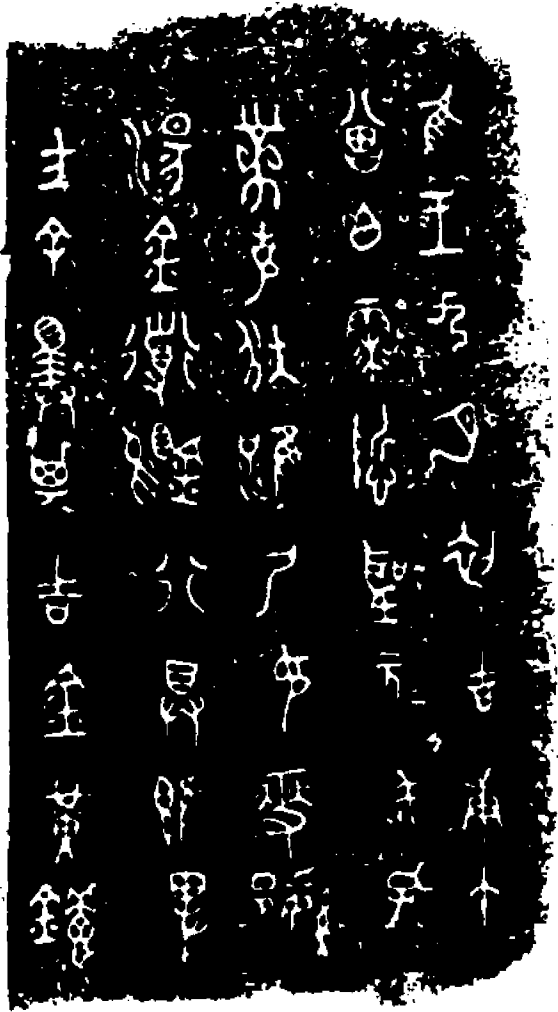 隹王九月初吉庚午
曾白霥悊聖元=武=孔
黹克狄淮尸印燮繁
湯金道錫行具既卑
方余擇其吉金黃鑪